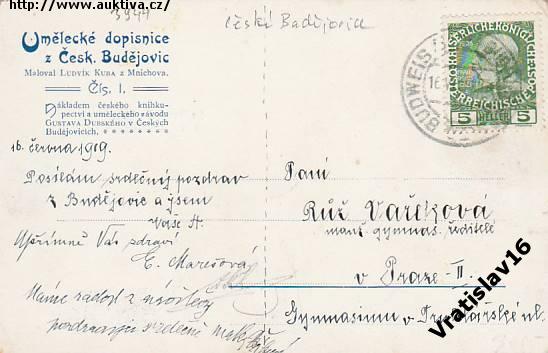 http://www.auktiva.cz
3944
České Budějovice
Umělecké dopisnice
z Česk. Budějovic
Maloval Ludvík Kuba z Mnichova.
Čís. 1.
Nákladem českého knihku-
pectví a uměleckého závodu
Gustava Dubského v Českých
Budějovicích.
BUDWEIS
5 HELLER 5
16. června 1909.
Posílám srdečný pozdrav
z Budějovic a jsem
Vaše A.
Upřímně Vás zdraví
E. Marešová
Máme radost z návštěvy
pozdravuji srdečně
Paní
Růž Vaňková
manž. gymnas. ředitele
v Praze-II.
Gymnasium v ul.
Vratislav16